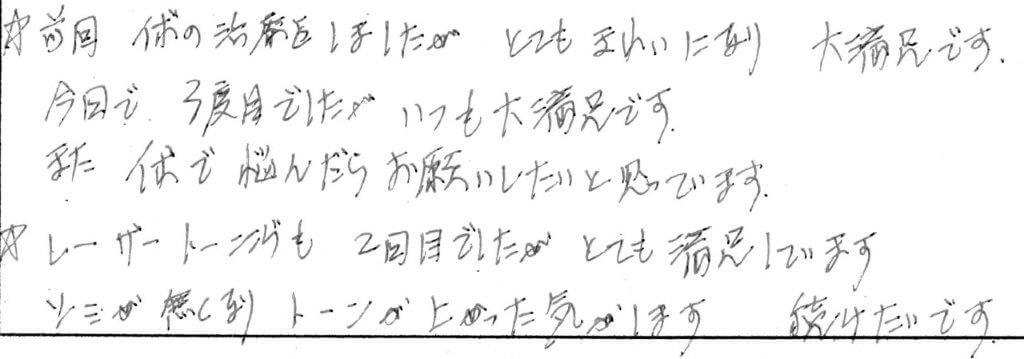 ☆前回 イボの治療をしましたが とてもきれいになり 大満足です.
今日で 3度目でしたが いつも大満足です.
また イボで悩んだら お願いしたいと思っています.
☆レーザートーニングも 2回目でしたが とても満足しています
シミが無くなり トーンが上がった気がします 続けたいです